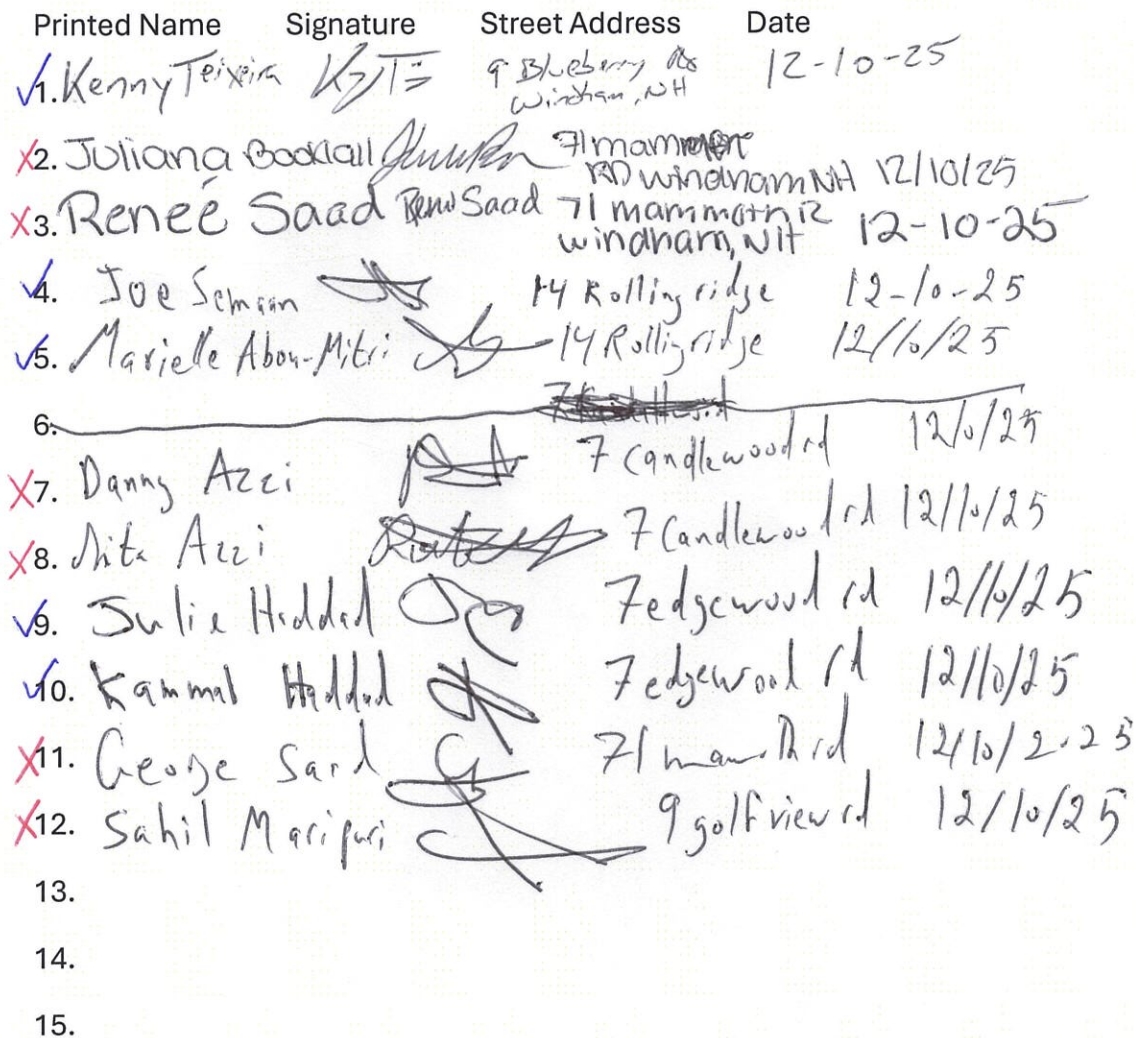 Printed Name Signature Street Address Date
1. Kenny Teixeira 9 Blueberry Rd 12-10-25
Windham, NH
2. Juliana Bookiall 71 mammoth
RD windham NH 12/10/25
3. Reneé Saad Renee Saad 71 mammoth R
windham, NH 12-10-25
4. Joe Semaan 14 Rolling ridge 12-10-25
5. Marielle Abou-Mitri 14 Rolling ridge 12/10/25
6.
7. Danny Azzi 7 Candlewood rd 12/0/25
8. Rita Azzi 7 Candlewood rd 12/10/25
9. Julie Haddad 7 edgewood rd 12/10/25
10. Kammal Haddad 7 edgewood rd 12/10/25
11. George Sard 71 rd 12/10/2025
12. Sahil Maripuri 9 golf view rd 12/10/25
13.
14.
15.